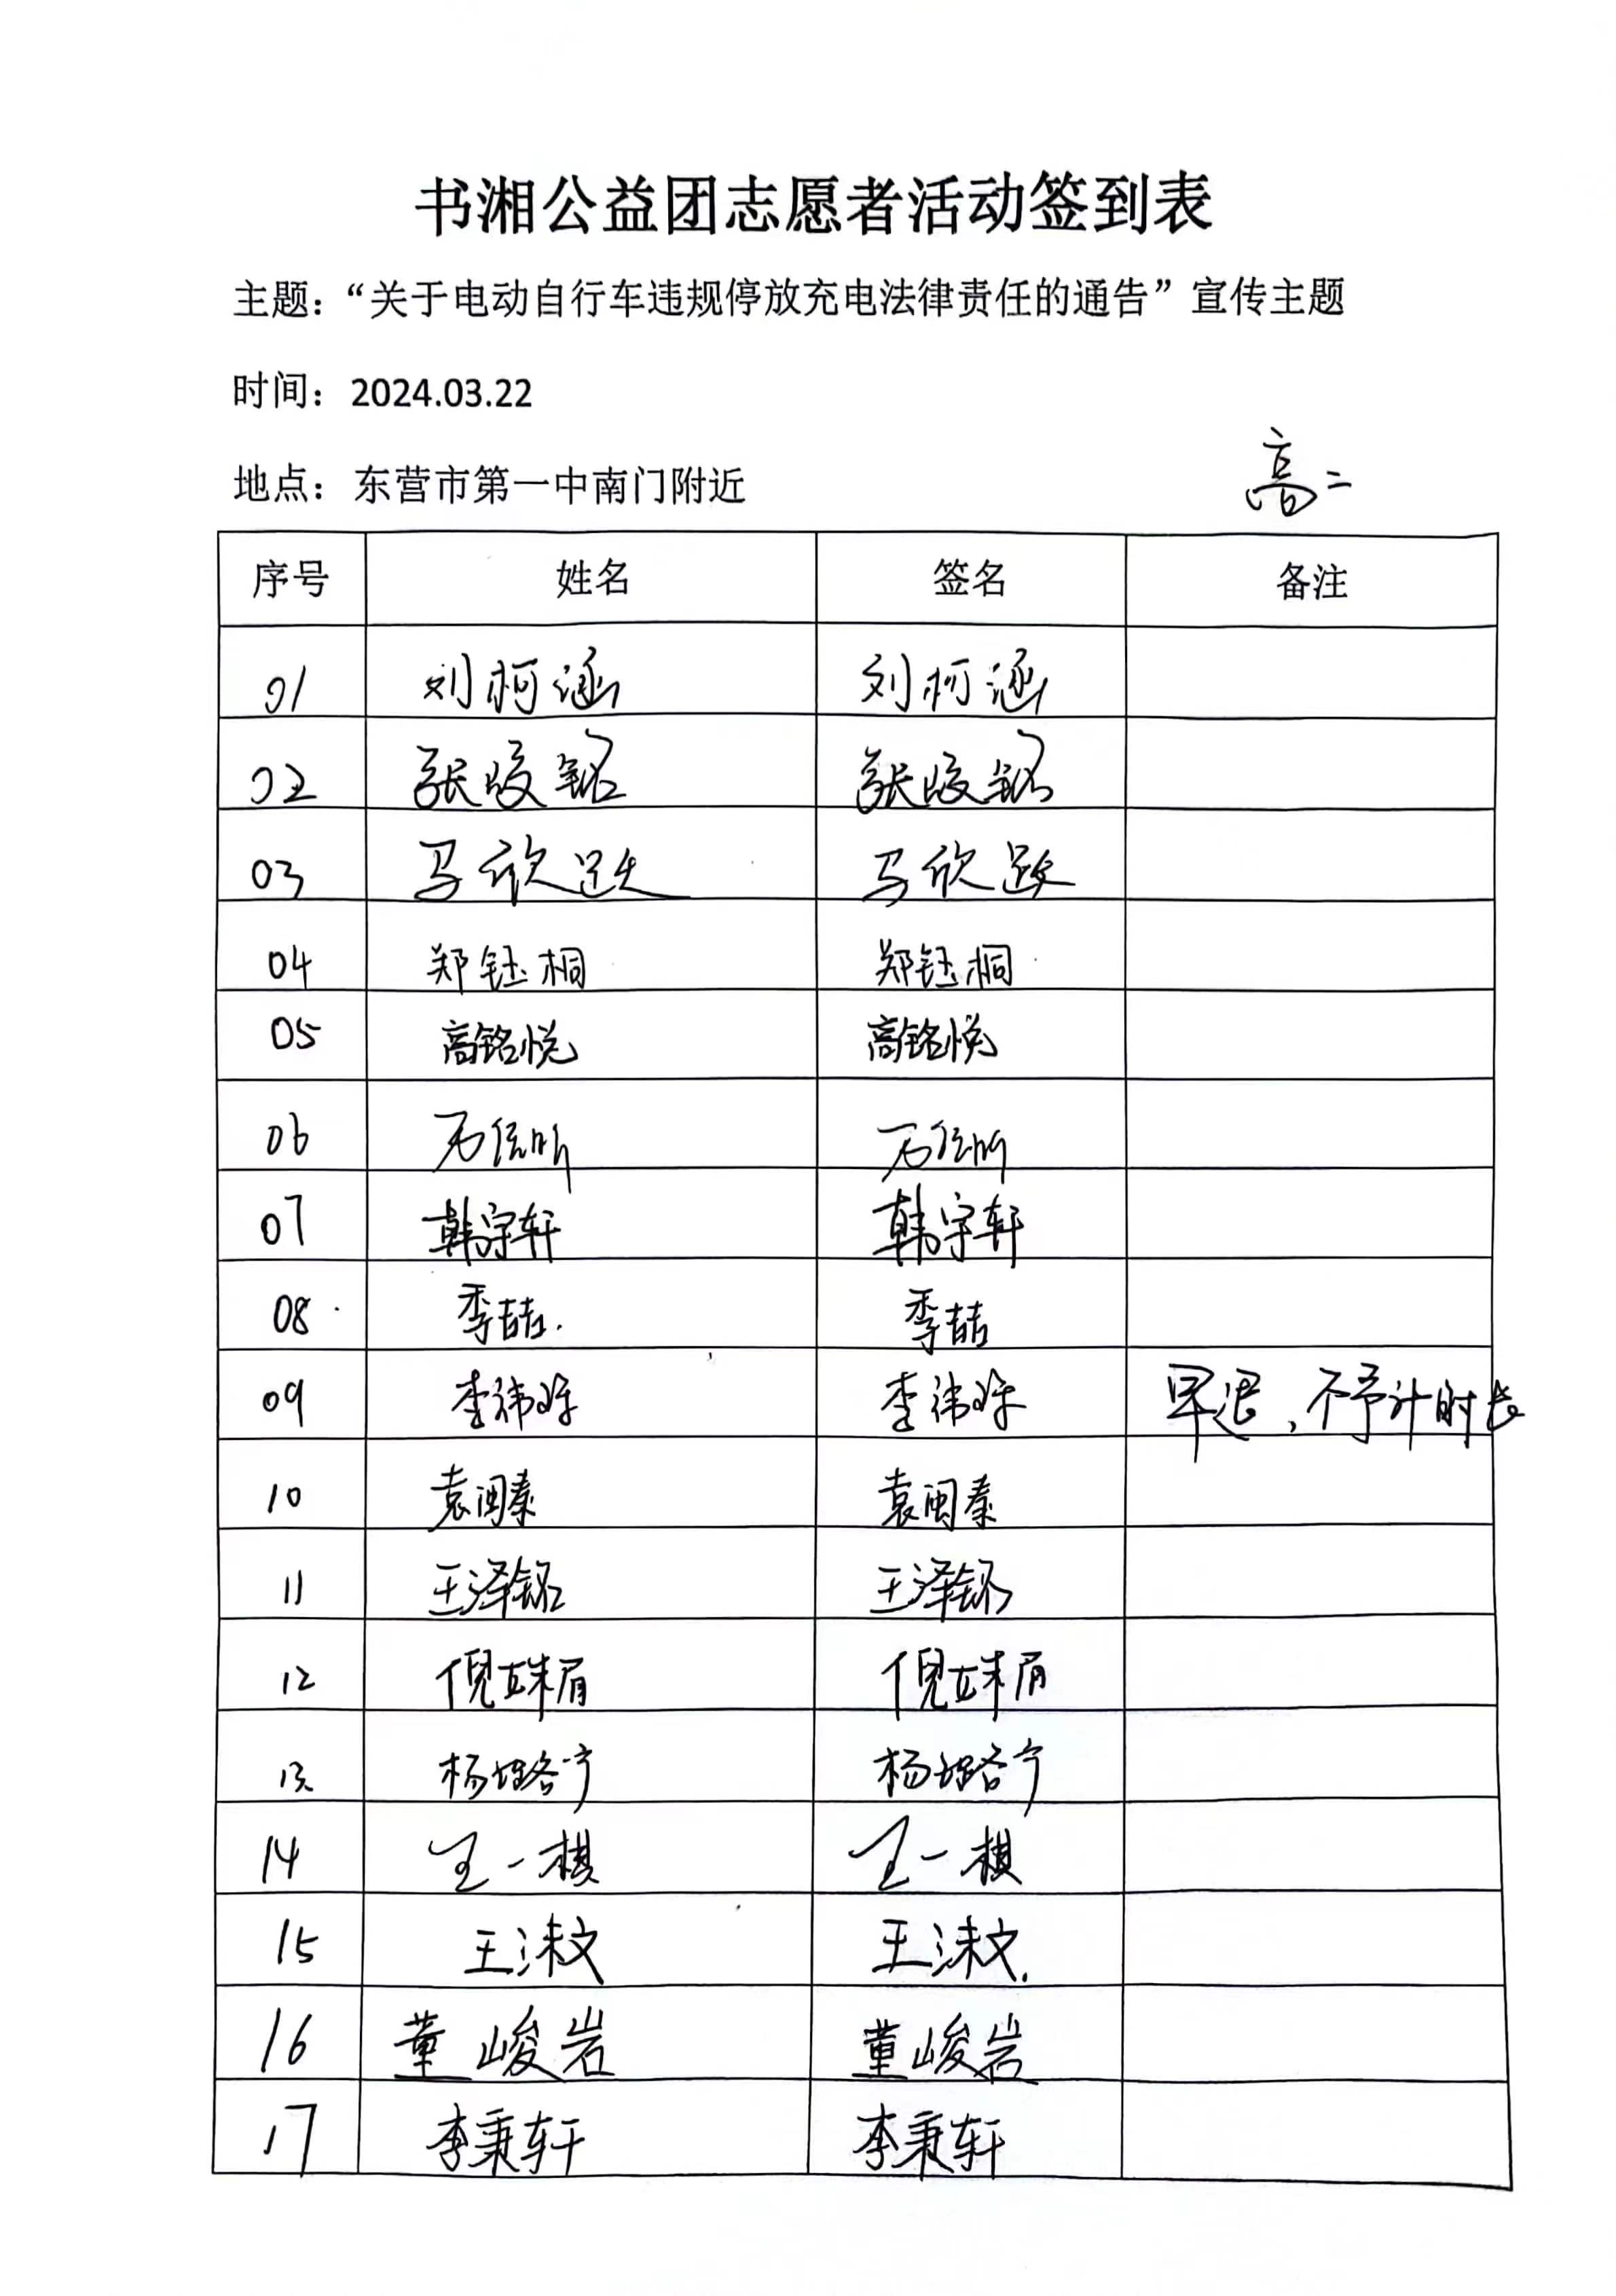 书湘公益团志愿者活动签到表
主题：“关于电动自行车违规停放充电法律责任的通告”宣传主题
时间：2024.03.22
地点：东营市第一中南门附近
高二
序号 姓名 签名 备注
01 刘柯涵 刘柯涵
02 张峻铭 张峻铭
03 马欣跃 马欣跃
04 郑钰桐 郑钰桐
05 高铭悦 高铭悦
06 石佳昕 石佳昕
07 韩宇轩 韩宇轩
08 李喆 李喆
09 李祎 李祎 早退，不予计时长
10 袁闽秦 袁闽秦
11 王泽铭 王泽铭
12 倪 倪
13 杨璐宁 杨璐宁
14 王一棋 王一棋
15 王沫文 王沫文
16 董峻岩 董峻岩
17 李秉轩 李秉轩